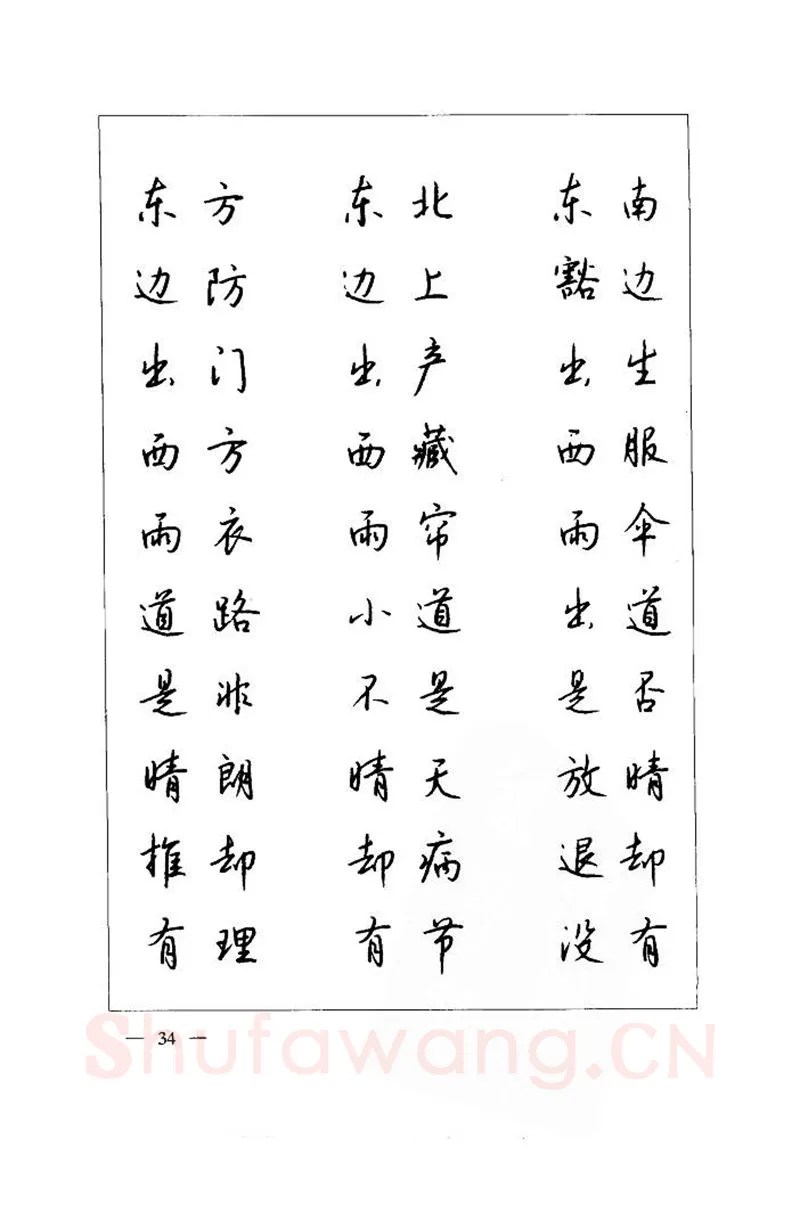 东方 东北 东南
边防 边上 豁边
出门 出产 出生
西方 西藏 西服
雨衣 雨帘 雨伞
道路 小道 出道
是非 不是 是否
晴朗 晴天 放晴
推却 却病 退却
有理 有节 没有
— 34 —
Shufawang.CN